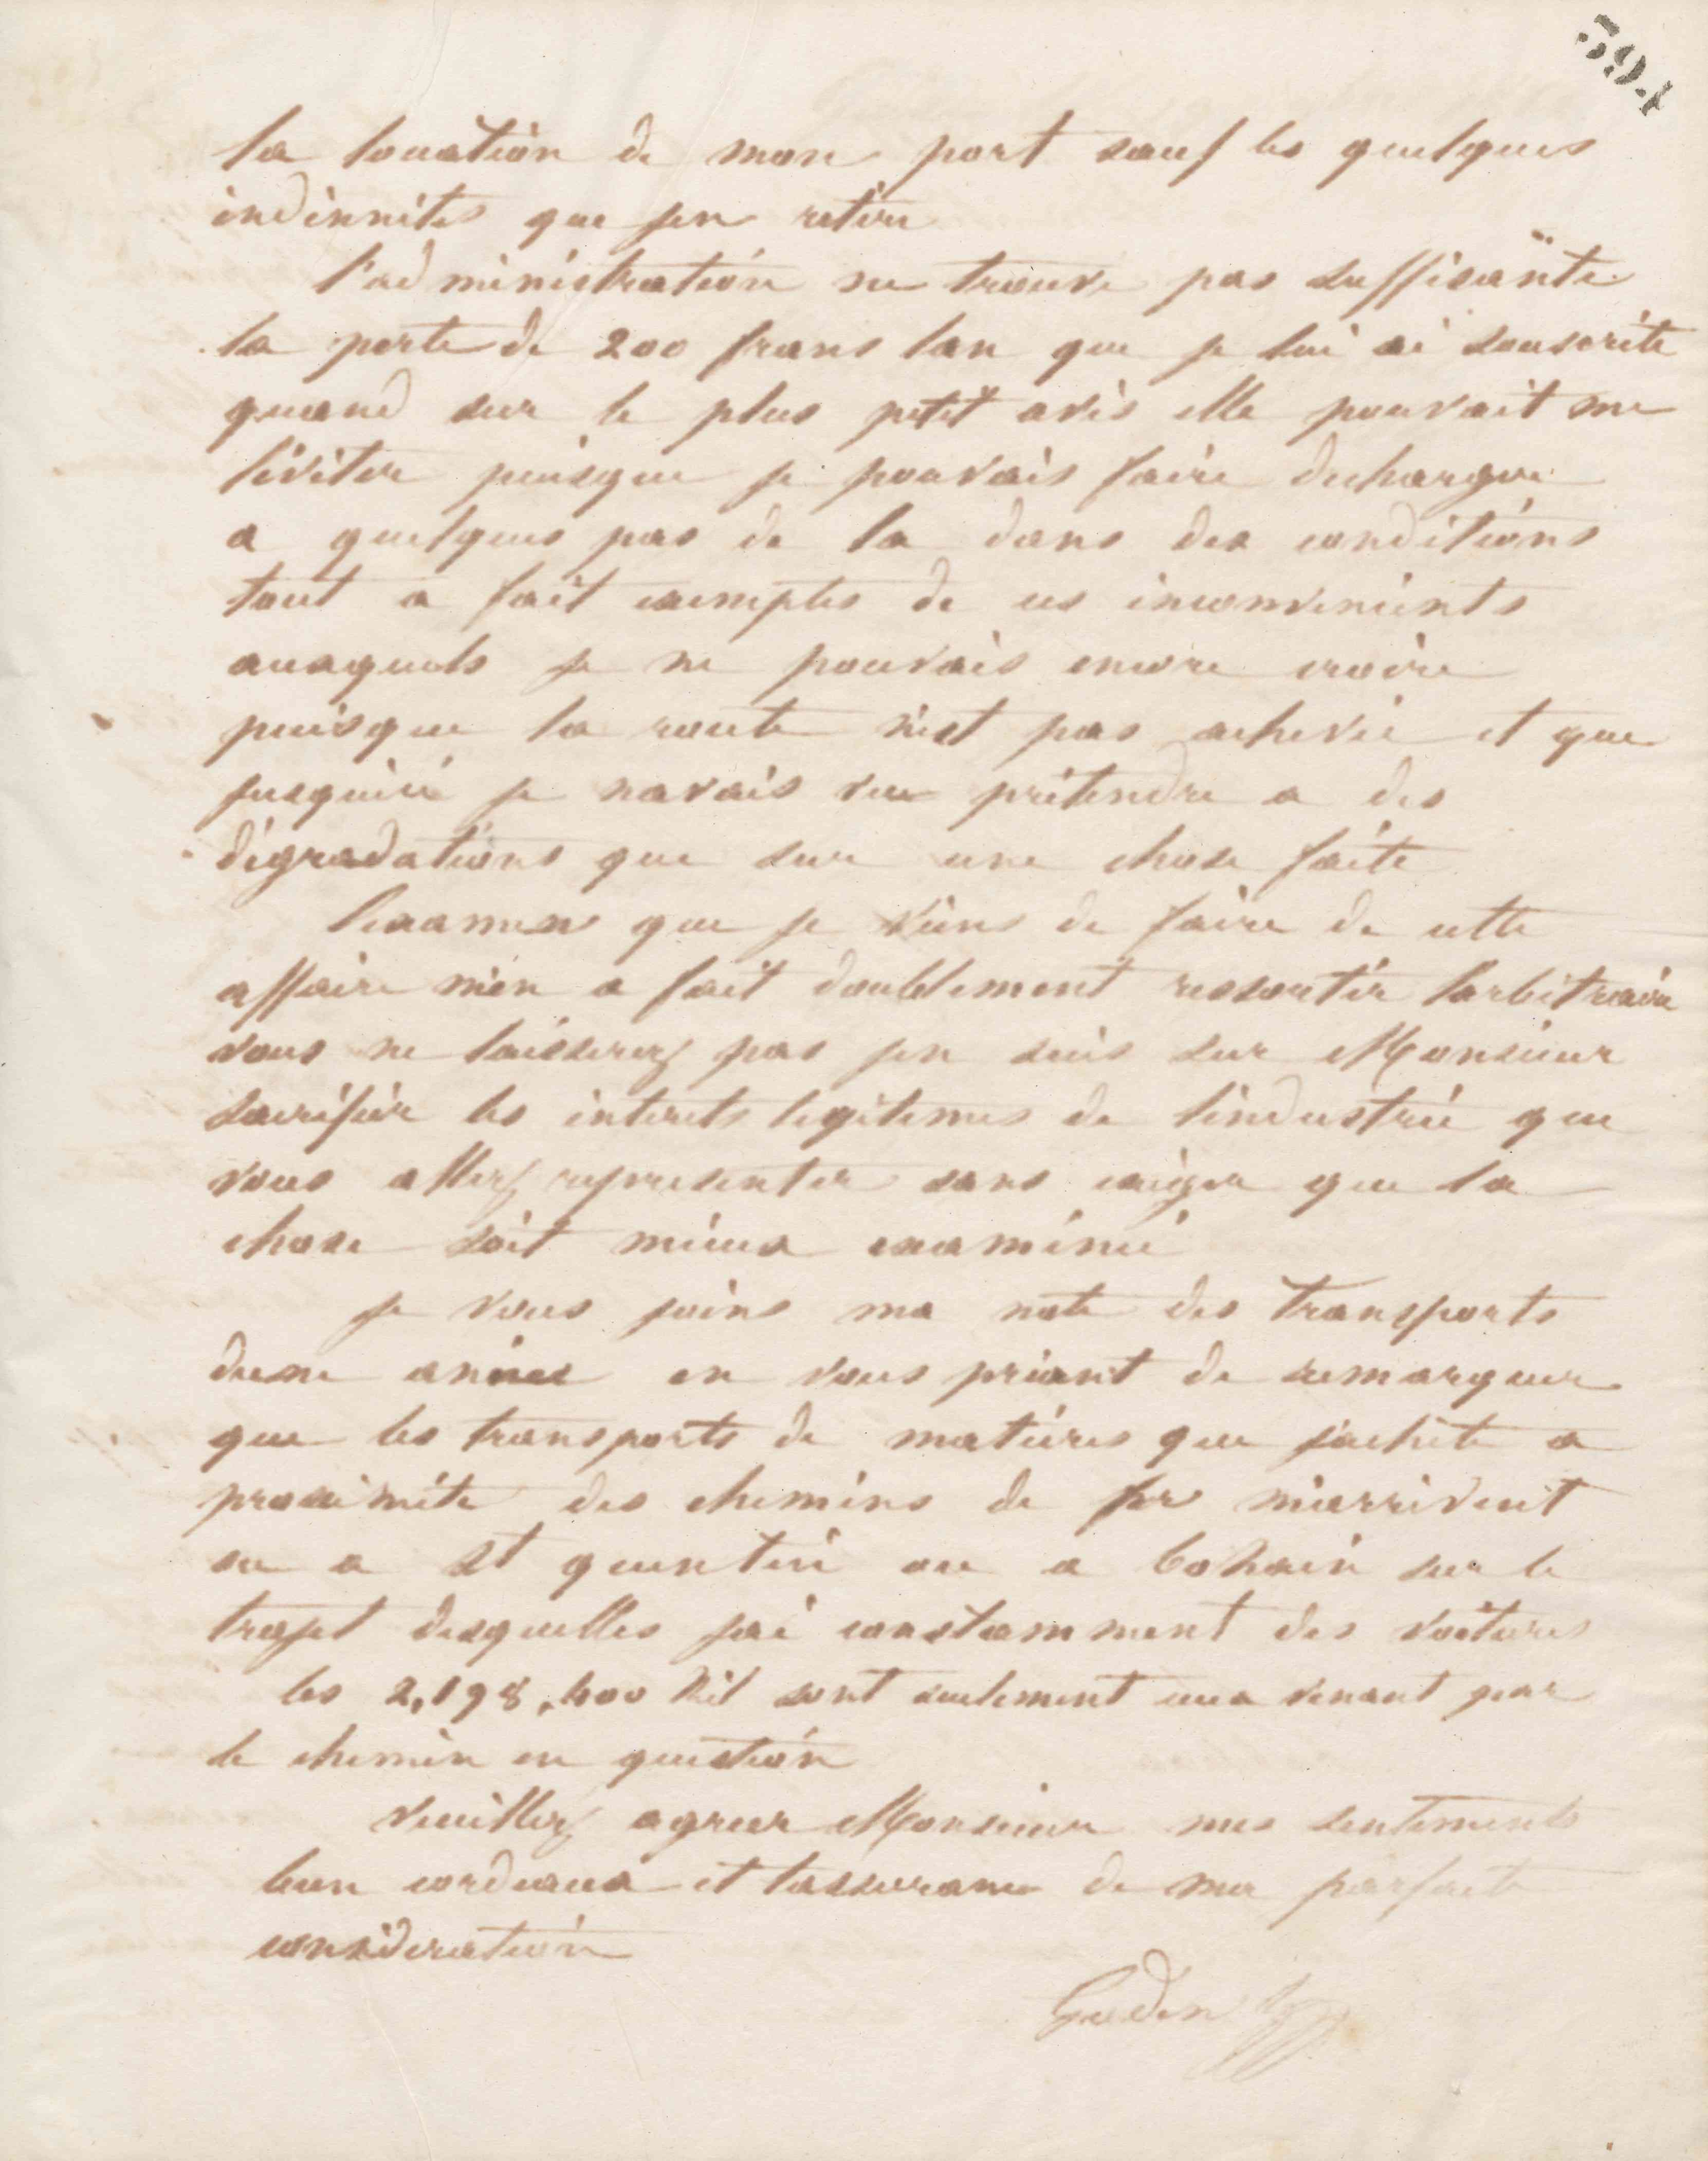 594
la location de mon port sauf les quelques
indemnites que jen retire
l'administration ne trouve pas suffisante
la perte de 200 frans lan que je lui ai souscrite
quand sur le plus petit avis elle pouvait me
léviter puisque je pouvais faire decharger
a quelques pas de la dans des conditions
tout a fait exemptes de ces inconvenients
auxquels je ne pouvais encore croire
puisque la route nest pas achevée et que
jusquici je navais vu prétendre a des
dégradations que sur une chose faite
lexamen que je viens de faire de cette
affaire men a fait doublement ressortir larbitraire
vous ne laisserez pas jen suis sur Monsieur
sacrifier les interets legitimes de lindustrie que
vous allez representer sans exiger que la
chose soit mieux examinée
je vous joins ma note des transports
dune année en vous priant de remarquer
que les transports de matières que jachete a
proximite des chemins de fer marrivent
ou a St quentin ou a bohain sur le
trajet desquelles jai constamment des voitures
les 2,198,400 Kil sont seulement ceux venant par
le chemin en question
veuillez agreer Monsieur mes sentiments
bien cordeaux et lassurance de ma parfaite
consideration
Godin